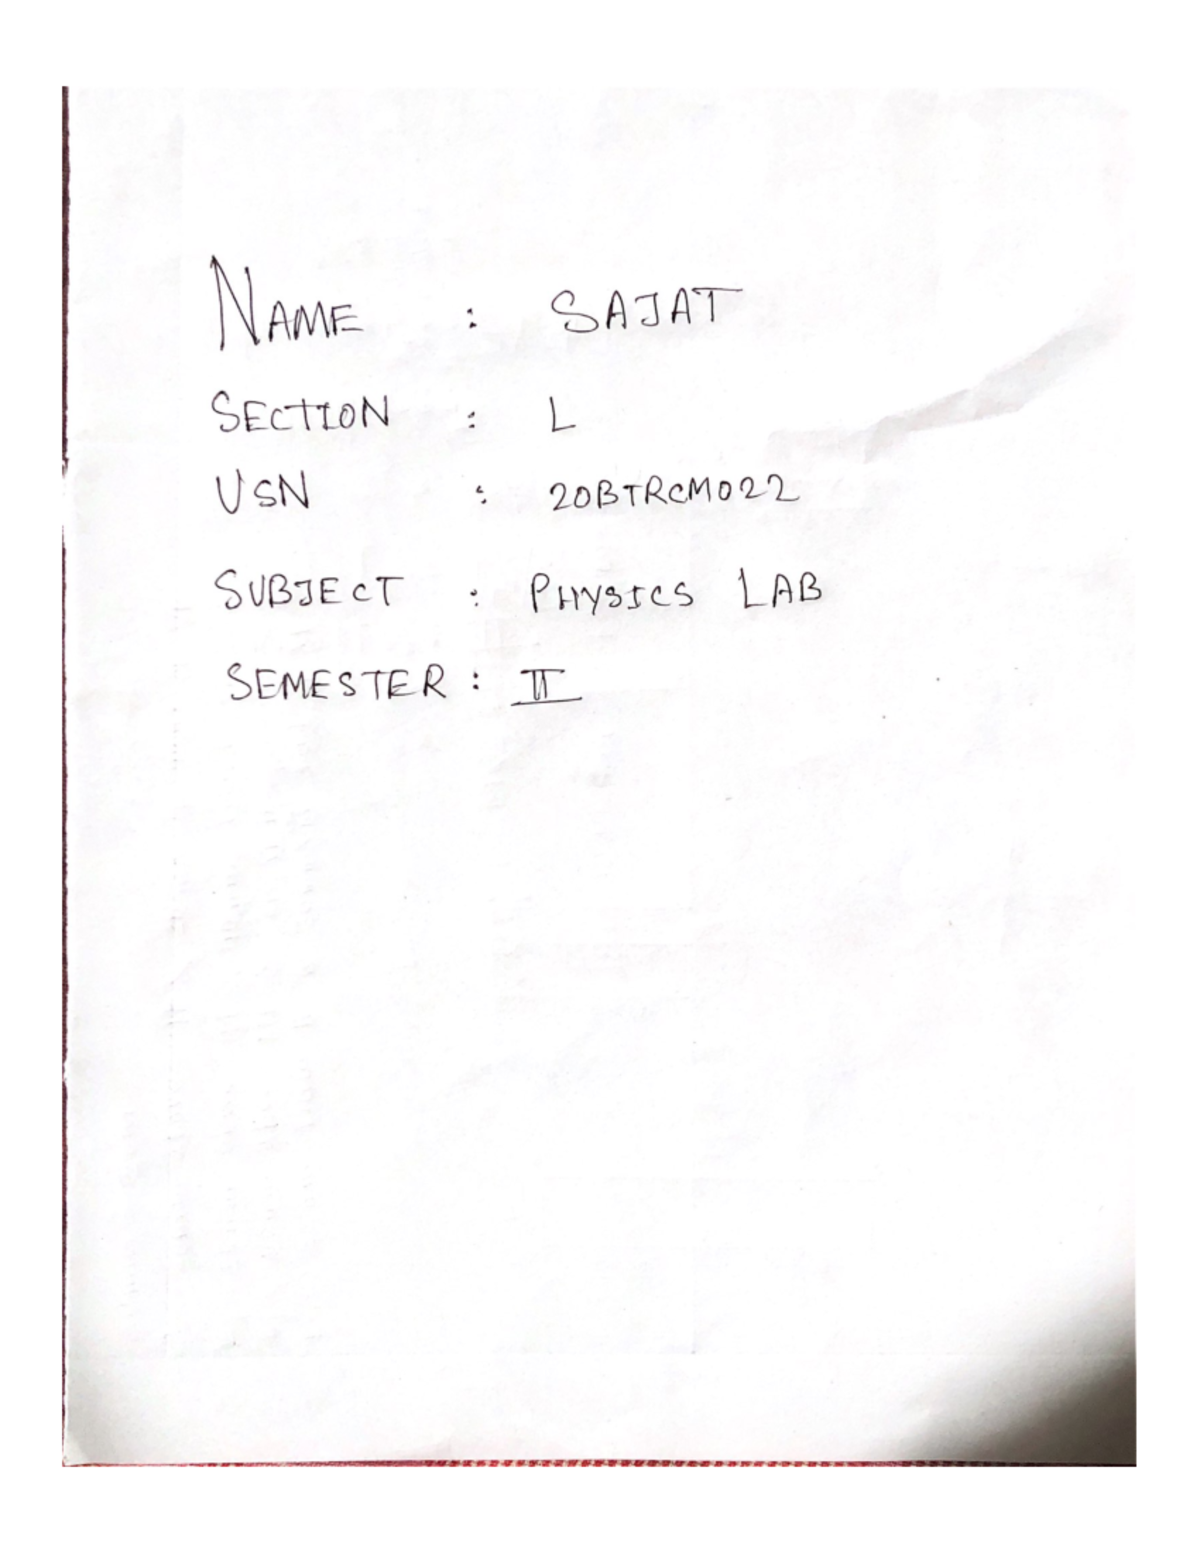 NAME : SAJAT
SECTION : L
USN : 20BTRCM022
SUBJECT : PHYSICS LAB
SEMESTER : II